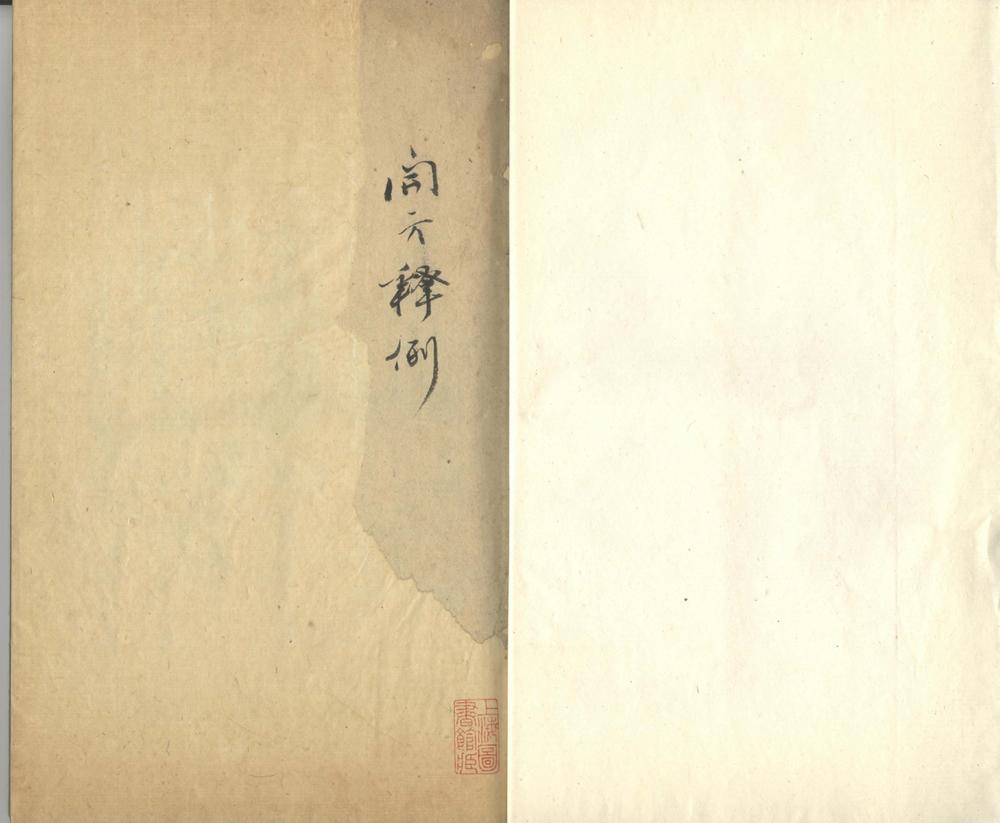 開方釋例
上海圖
書館藏